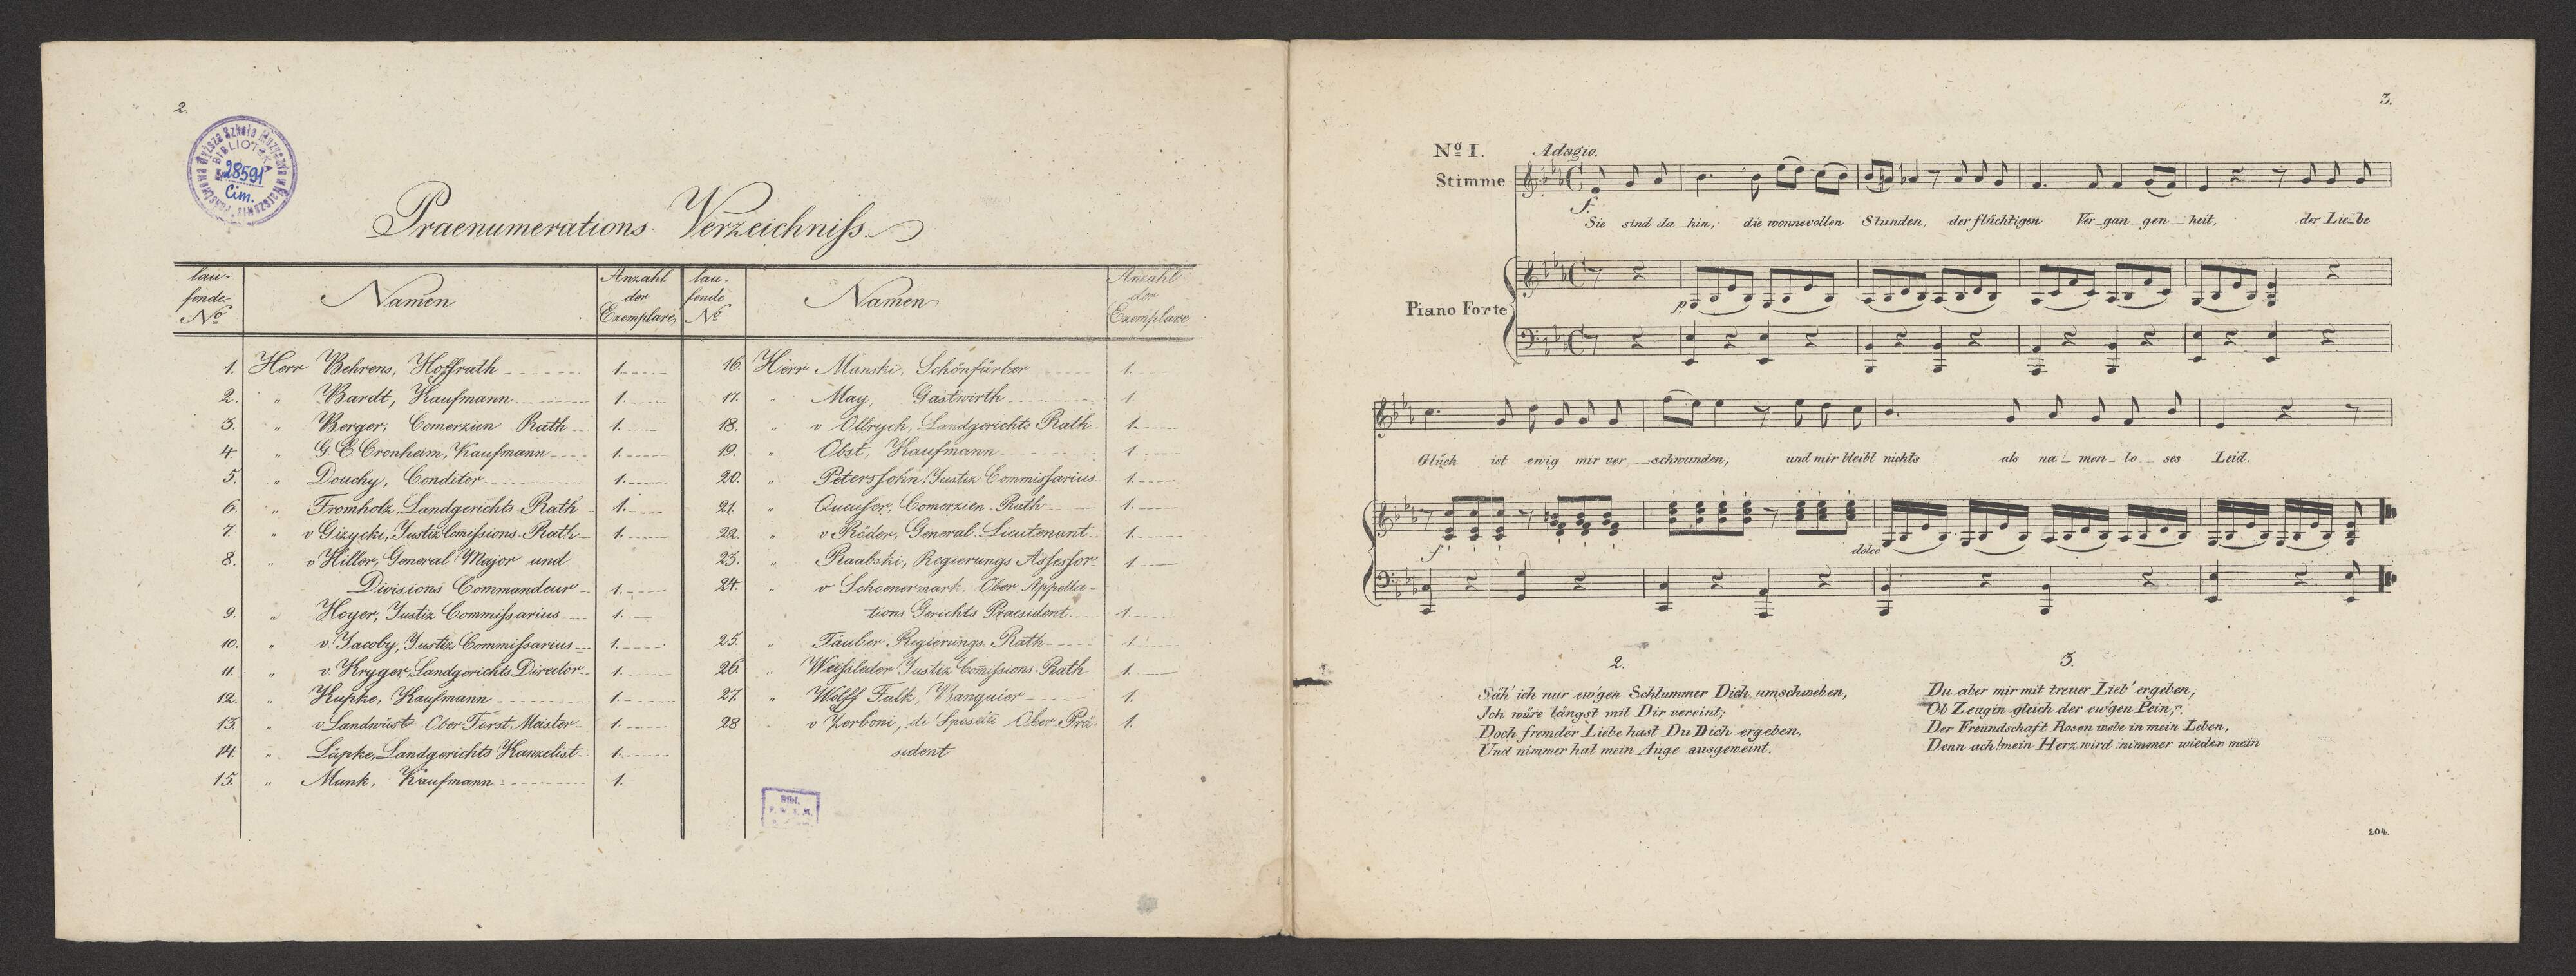 2.
BIBLIOTEKA
28591
Cim.
Praenumerations-Verzeichniſs.
lau-
fende
No
Namen
Anzahl
der
Exemplare
lau-
fende
No
Namen
Anzahl
der
Exemplare
1. Herr Behrens, Hoffrath 1.
2. " Bardt, Kaufmann 1.
3. " Berger, Comerzien Rath 1.
4. " G. E. Cronheim, Kaufmann 1.
5. " Douchy, Conditor 1.
6. " Fromholz, Landgerichts-Rath 1.
7. " v Gizycki, Justiz Com̄iſsions-Rath 1.
8. " v Hiller, General Major und
Divisions Commandeur 1.
9. " Hoyer, Justiz Commiſsarius 1.
10. " v. Jacoby, Justiz Commiſsarius 1.
11. " v. Kryger, Landgerichts Director 1.
12. " Kupke, Kaufmann 1.
13. " v Landwüst Ober-Forst-Meister 1.
14. " Lüpke, Landgerichts Kanzelist 1.
15. " Munk, Kaufmann 1.
16. Herr Manski, Schönfärber 1.
17. " May, Gastwirth 1.
18. " v Ollrych, Landgerichts Rath 1.
19. " Obst, Kaufmann 1.
20. " Petersſohn, Justiz Commiſsarius 1.
21. " Comerzien-Rath 1.
22. " v Röder, General-Lieutenant 1.
23. " Raabski, Regierungs Aſseſsor 1.
24. " v Schoenermark, Ober Appella-
tions Gerichts Praesident 1.
25. " Täuber, Regierungs-Rath 1.
26. " Weiſsleder Justiz Com̄iſsions-Rath 1.
27. " Wolff Falk, Banquier 1.
28 " v Zerboni, di Sposetti Ober Prä- 1.
sident
Bibl.
3.
No I.
Adagio.
Stimme
f.
Sie sind da-hin, die wonnevollen Stunden, der flüchtigen Ver-gan-gen-heit, der Lie-be
Piano Forte
p
Glück ist ewig mir ver-schwunden, und mir bleibt nichts als na-men-lo-ses Leid.
f
dolce
2.
Säh' ich nur ew'gen Schlummer Dich umschweben,
Ich wäre längst mit Dir vereint;
Doch fremder Liebe hast Du Dich ergeben,
Und nimmer hat mein Auge ausgeweint.
3.
Du aber mir mit treuer Lieb' ergeben,
Ob Zeugin gleich der ew'gen Pein,
Der Freundschaft Rosen webe in mein Leben,
Denn ach! mein Herz wird nimmer wieder mein
204.